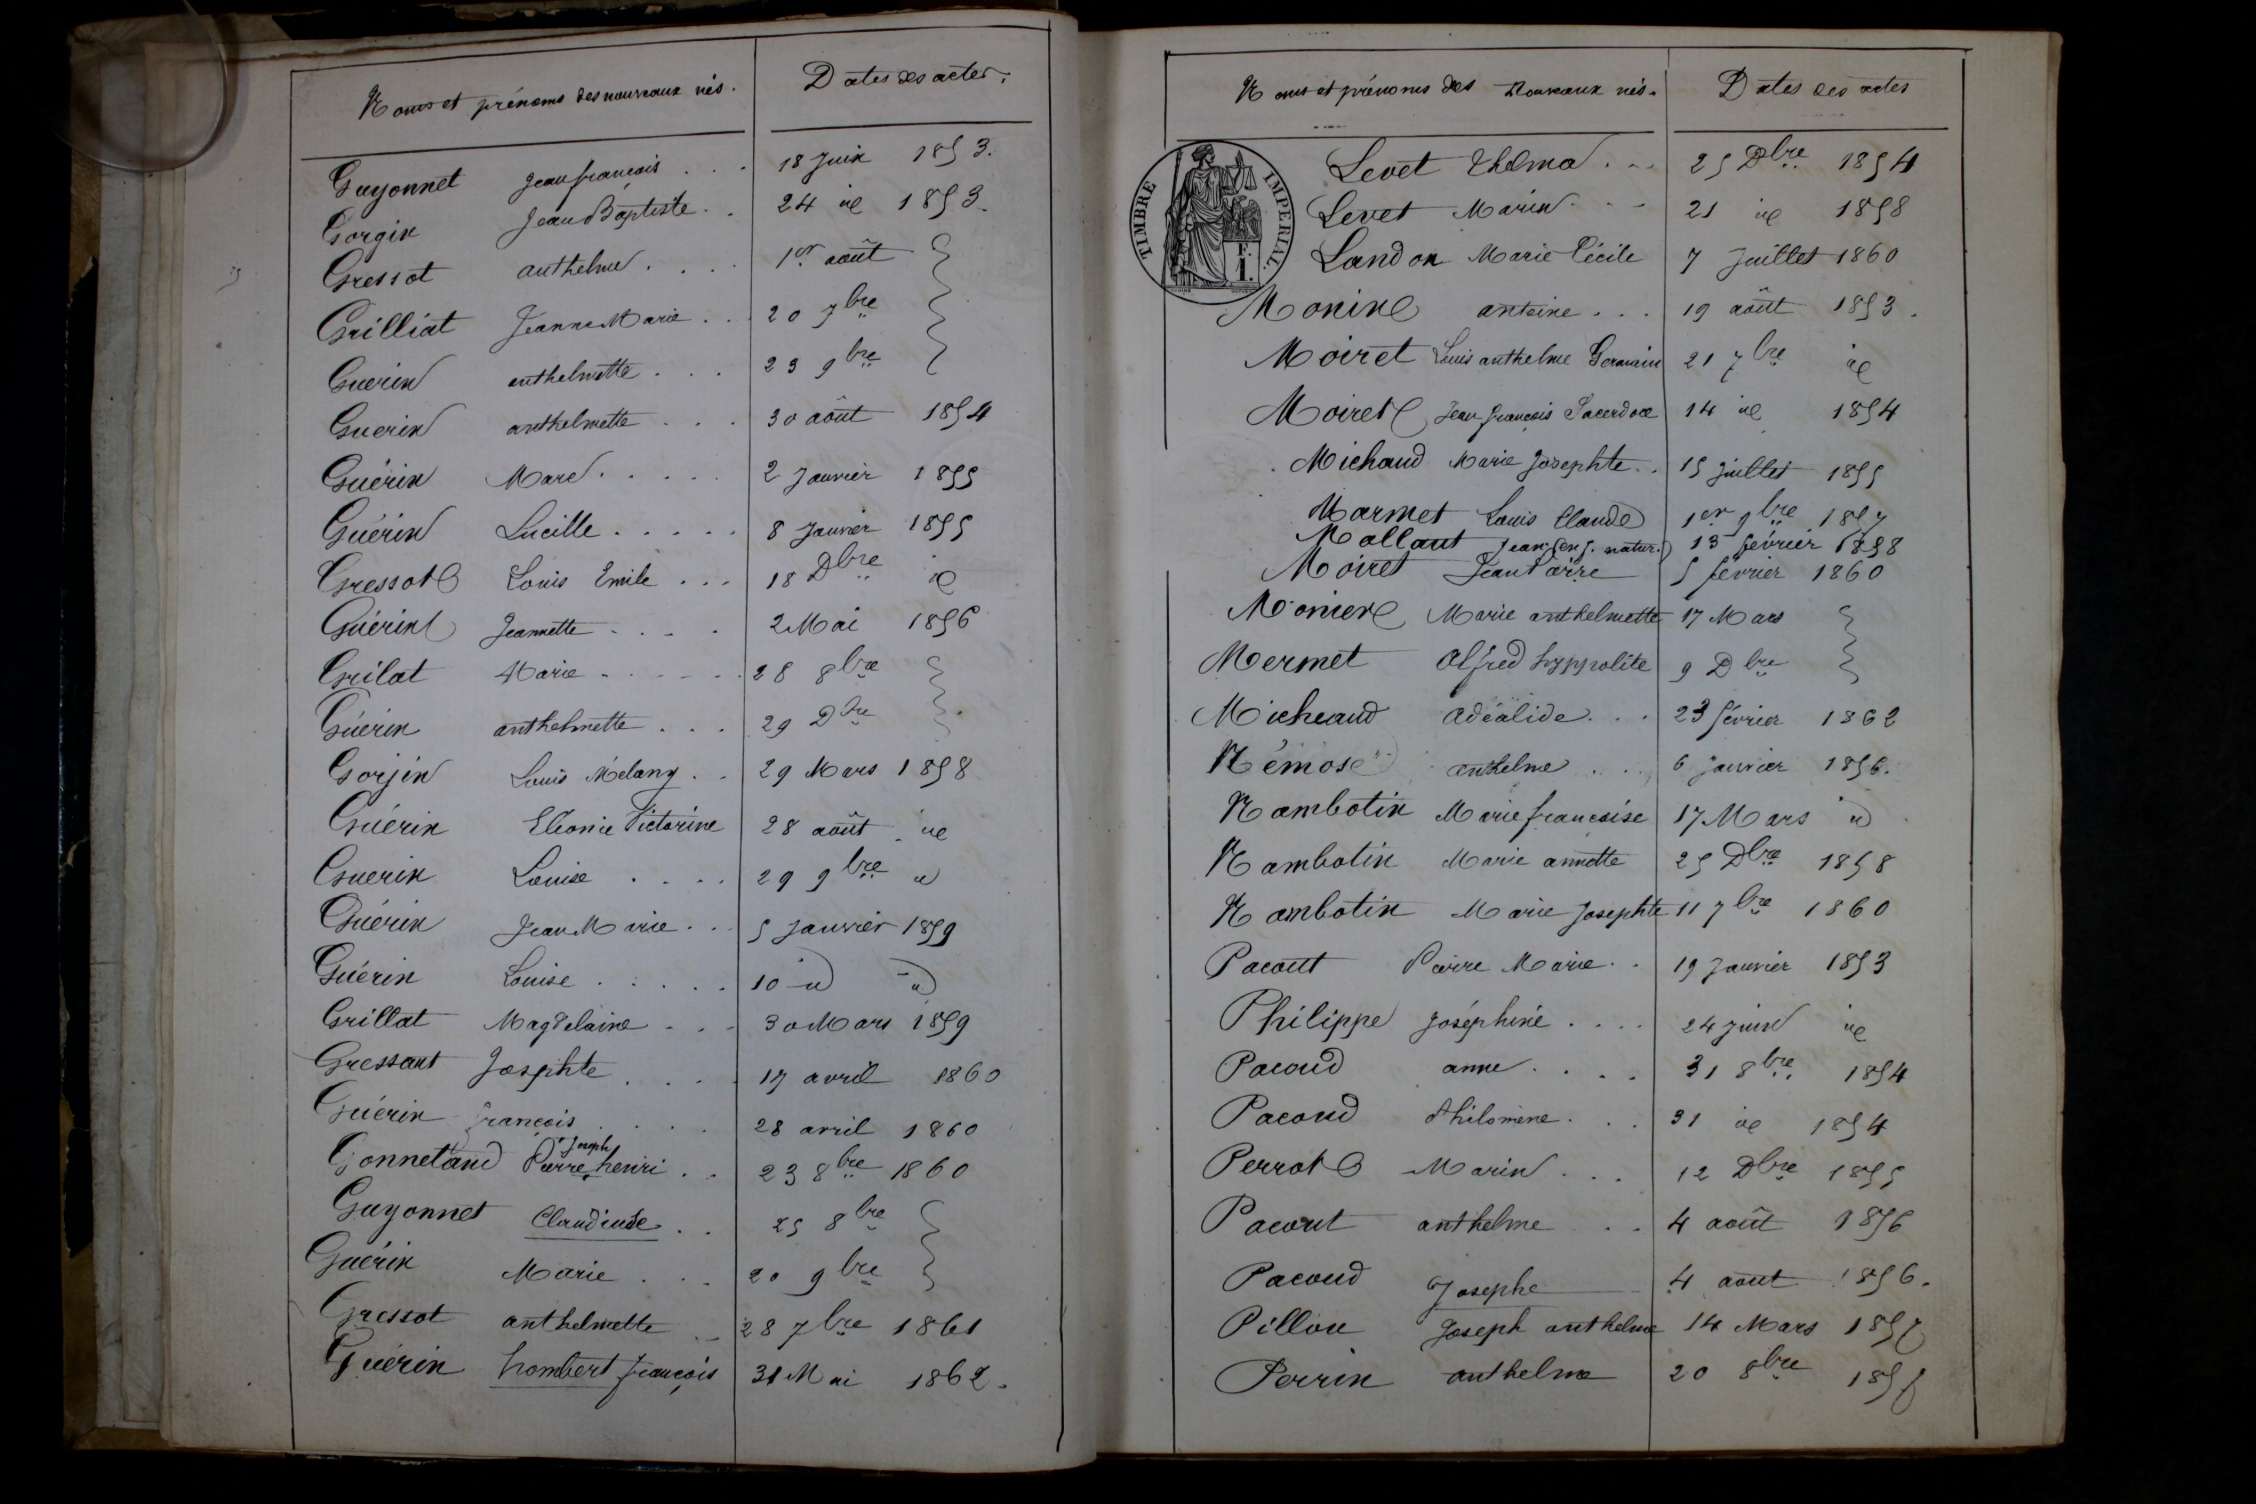 Noms et prénoms des nouveaux nés. Dates des actes.
Guyonnet Jean françois . . . 18 Juin 1853.
Gorgin Jean Baptiste . . 24 id 1853.
Gressot anthelme . . . . 1er août
Grilliat Jeanne Marie . . . 20 7bre
Guerin anthelmette . . . 23 9bre
Guerin anthelmette . . . 30 août 1854
Guérin Marc . . . . . 2 Janvier 1855
Guérin Lucille . . . . . 8 Janvier 1855
Gressot Louis Emile . . . 18 Dbre id
Guérin Jeannette . . . . 2 Mai 1856
Grilat Marie . . . . . . 28 8bre
Guérin anthelmette . . . 29 Dbre
Gorjin Louis Mélany . . 29 Mars 1858
Guérin Eléonie Victorine 28 août id
Guerin Louise . . . . 29 9bre id
Guérin Jean Marie . . . 5 Janvier 1859
Guérin Louise . . . . . 10 id id
Grillat Magdelaine . . . 30 Mars 1859
Gressant Josephte . . . . 17 avril 1860
Guérin françois . . . . 28 avril 1860
Gonnetand Pierre Joseph henri . . 23 8bre 1860
Guyonnet Claudine . . 25 8bre
Guérin Marie . . . 20 9bre
Gressot anthelmette . . 28 7bre 1861
Guérin hombert françois 31 Mai 1862.
Noms et prénoms des Nouveaux nés. Dates des actes
TIMBRE IMPERIAL.
Levet thelma . . . 25 Dbre 1854
Levet Marin . . . 21 id 1858
Landon Marie Cécile 7 Juillet 1860
Monin antoine . . . 19 août 1853.
Moiret Louis anthelme Germain 21 7bre id
Moiret Jean françois Sacerdoce 14 id 1854
Michaud Marie Josephte . . 15 Juillet 1855
Marmet Louis Claude 1er 9bre 1857
Mollant Jean natur. 13 février 1858
Moiret Jean Pierre 5 février 1860
Monier Marie anthelmette 17 Mars
Mermet Alfred hyppolite 9 Dbre
Micheaud adéalide . . . 23 février 1862
Némose anthelme . . . 6 Janvier 1856.
Nambotin Marie françoise 17 Mars id
Nambotin Marie annette 25 Dbre 1858
Nambotin Marie Josephte 11 7bre 1860
Pacout Pierre Marie . . 19 Janvier 1853
Philippe Joséphine . . . . 24 Juin id
Pacoud anne . . . . 31 8bre 1854
Pacoud Philomène . . . 31 id 1854
Perrot Marin . . . 12 Dbre 1855
Pacout anthelme . . 4 août 1856
Pacoud Josephe 4 août 1856.
Pillou Joseph anthelme 14 Mars 1857
Perrin anthelme 20 8bre